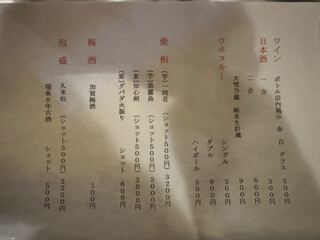 ワイン ボトル店内掲示 赤 白 グラス 500円
日本酒 一合 600円
二合 900円
大雪乃蔵 純米生貯蔵
ウヰスキー シングル 300円
ダブル 600円
ハイボール 500円
焼酎 (芋)一刻者 (ショット500円) 3200円
(芋)黒霧島 (ショット500円) 3000円
(麦)知心剣 (ショット500円) 3000円
(栗)ダバダ火振り ショット 600円
梅酒 加賀梅酒 500円
泡盛 久米仙 (ショット500円) 3200円
瑞泉8年古酒 ショット 500円